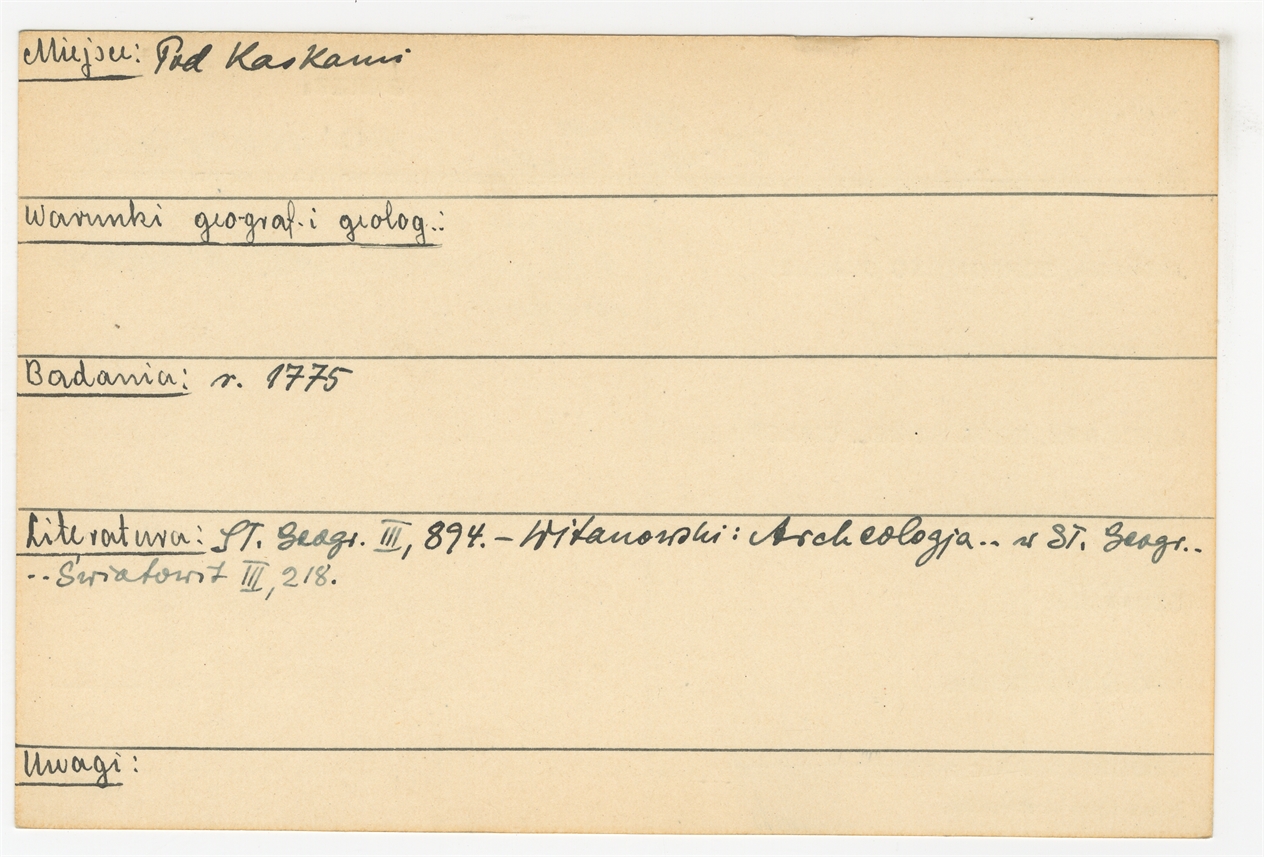 Miejsce: Pod Kaskami
Warunki geograf. i geolog.:
Badania: r. 1775
Literatura: Sł. Geogr. III, 894. – Witanowski: Archeologja.. w Sł. Geogr..
.. Światowit III, 218.
Uwagi: